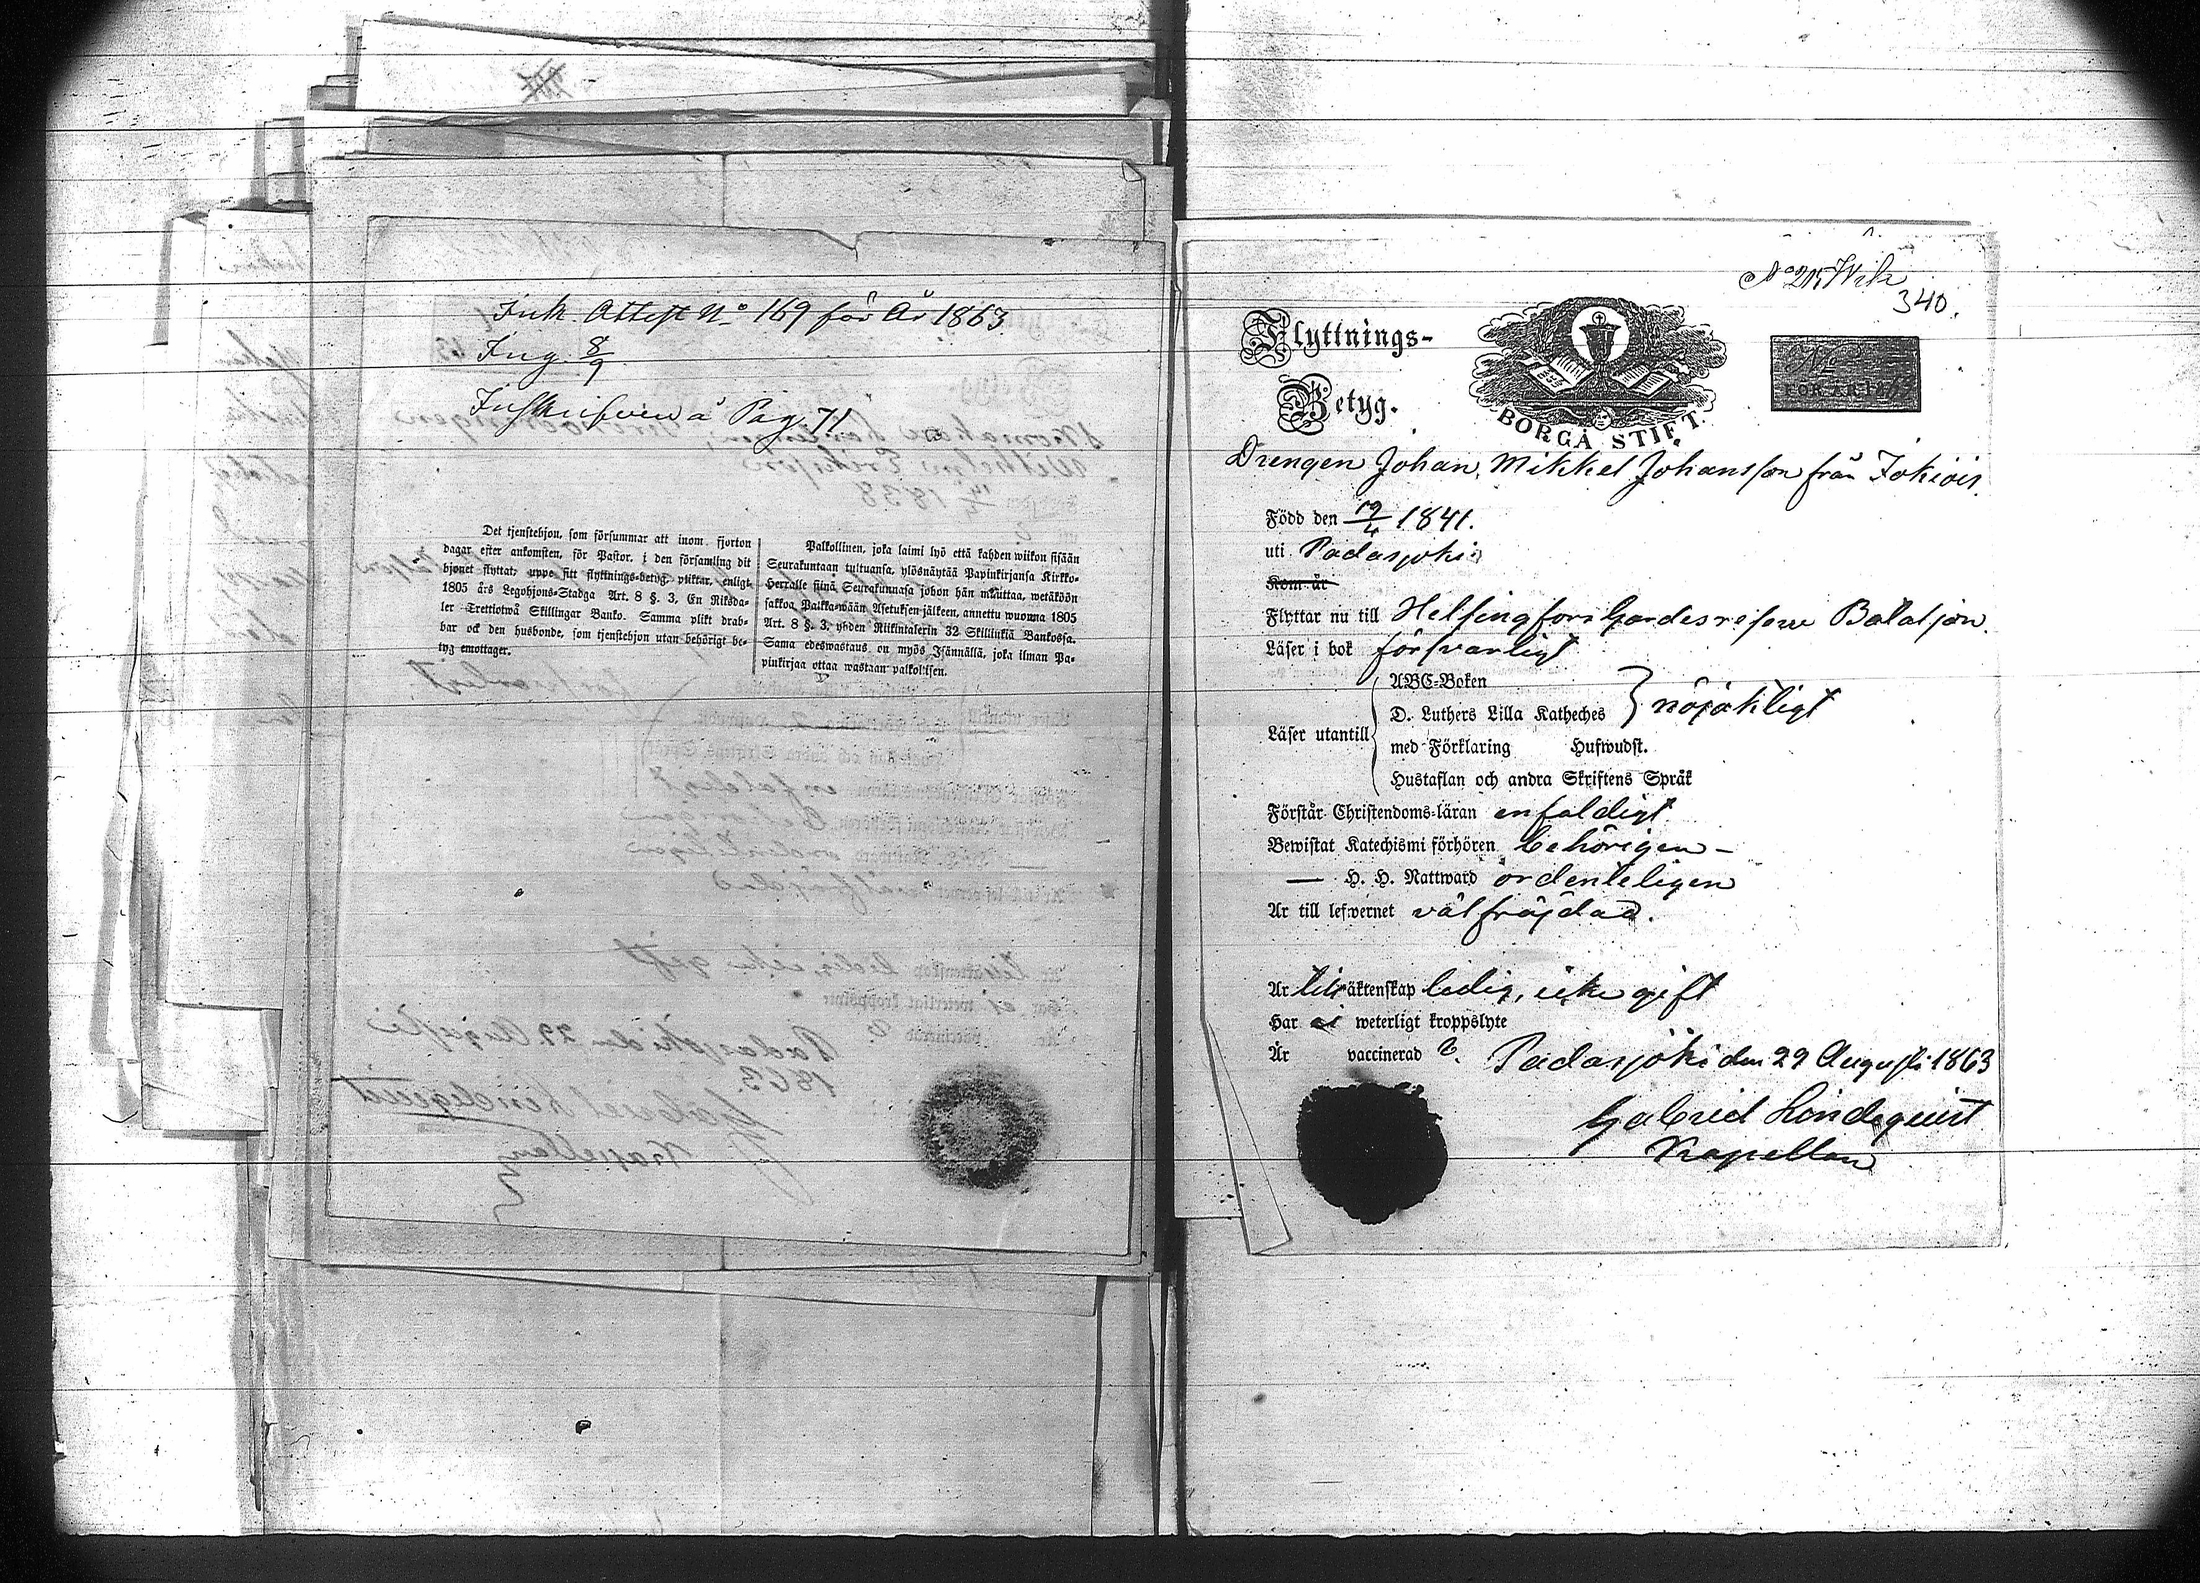 Ink. Attest No 169 för År 1863
Ing. 8/9
Inskrifven å Pag 71
Det tjenstehjon, som försummar att inom fjorton
dagar efter ankomsten, för Pastor, i den församling dit
hjonet flyttat, uppe sitt flyttnings-betyg, pliktar, enligt
1805 års Legohjons-Stadga Art. 8 §. 3, En Riksda-
ler Trettiotwå Skillingar Banko. Samma plikt drab-
bar ock den husbonde, som tjenstehjon utan behörigt be-
tyg emottager.
Palkollinen, joka laimi lyö että kahden wiikon sisään
Seurakuntaan tultuansa, ylösnäytää Papinkirjansa Kirkko-
Herralle siinä Seurakunnasa johon hän muuttaa, wetäköön
sakkoa Palka-wään Asetuksen jälkeen, annettu wuonna 1805
Art. 8 §. 3, yhden Riikintalerin 32 Skillinkiä Bankossa.
Sama edeswastaus on myös Isännällä, joka ilman Pa-
pinkirjaa ottaa wastaan palkollisen.
340.
Flyttnings-
Betyg.
BORGÅ STIFT.
No
FÖR ÅR 1863
Drengen Johan Mikkel Johansson från Jokiois.
Född den 19/4 1841.
uti Padasjoki
Kom år
Flyttar nu till Helsingfors Gardesreserve Bataljon.
Läser i bok försvarligt
Läser utantill
ABC-Boken
D. Luthers Lilla Katheches
med Förklaring Hufwudst.
Hustaflan och andra Skriftens Språk
nöjaktligt
Förstår Christendoms-läran enfaldigt
Bewistat Katechismi förhören behörigen –
— H. H. Nattward ordenteligen
Är till lefwernet välfräjdad.
Är till äktenskap ledig, icke gift
Har ei weterligt kroppslyte
Är vaccinerad
Padasjöki den 29 Augusti 1863
Gabriel Lindequist
Kapellan